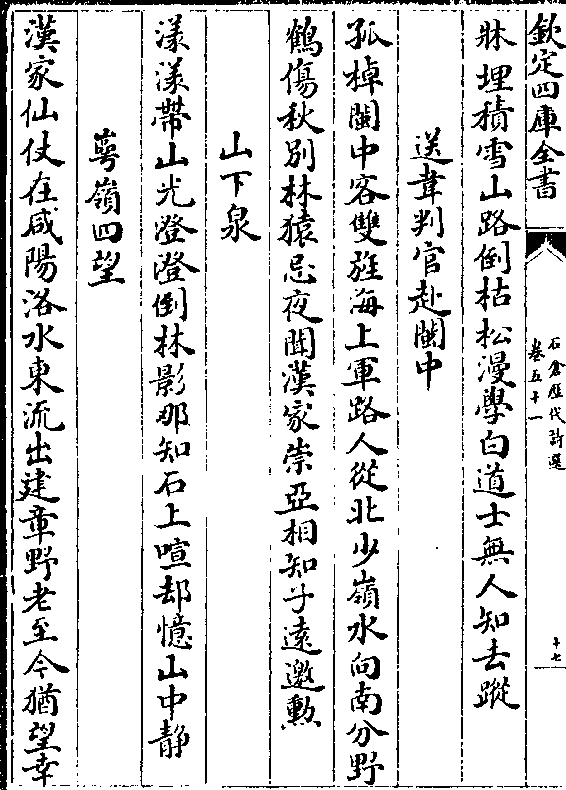 欽定四庫全書
石倉歴代詩選
卷五十一
十七
牀埋積雪山路倒枯松漫學白道士無人知去蹤
送韋判官赴閩中
孤棹閩中客雙旌海上軍路人從北少嶺水向南分野
鶴傷秋別林猿忌夜聞漢家崇亞相知子遠邀勲
山下泉
漾漾帶山光澄澄倒林影那知石上喧却憶山中静
萼嶺四望
漢家仙仗在咸陽洛水東流出建章野老至今猶望幸